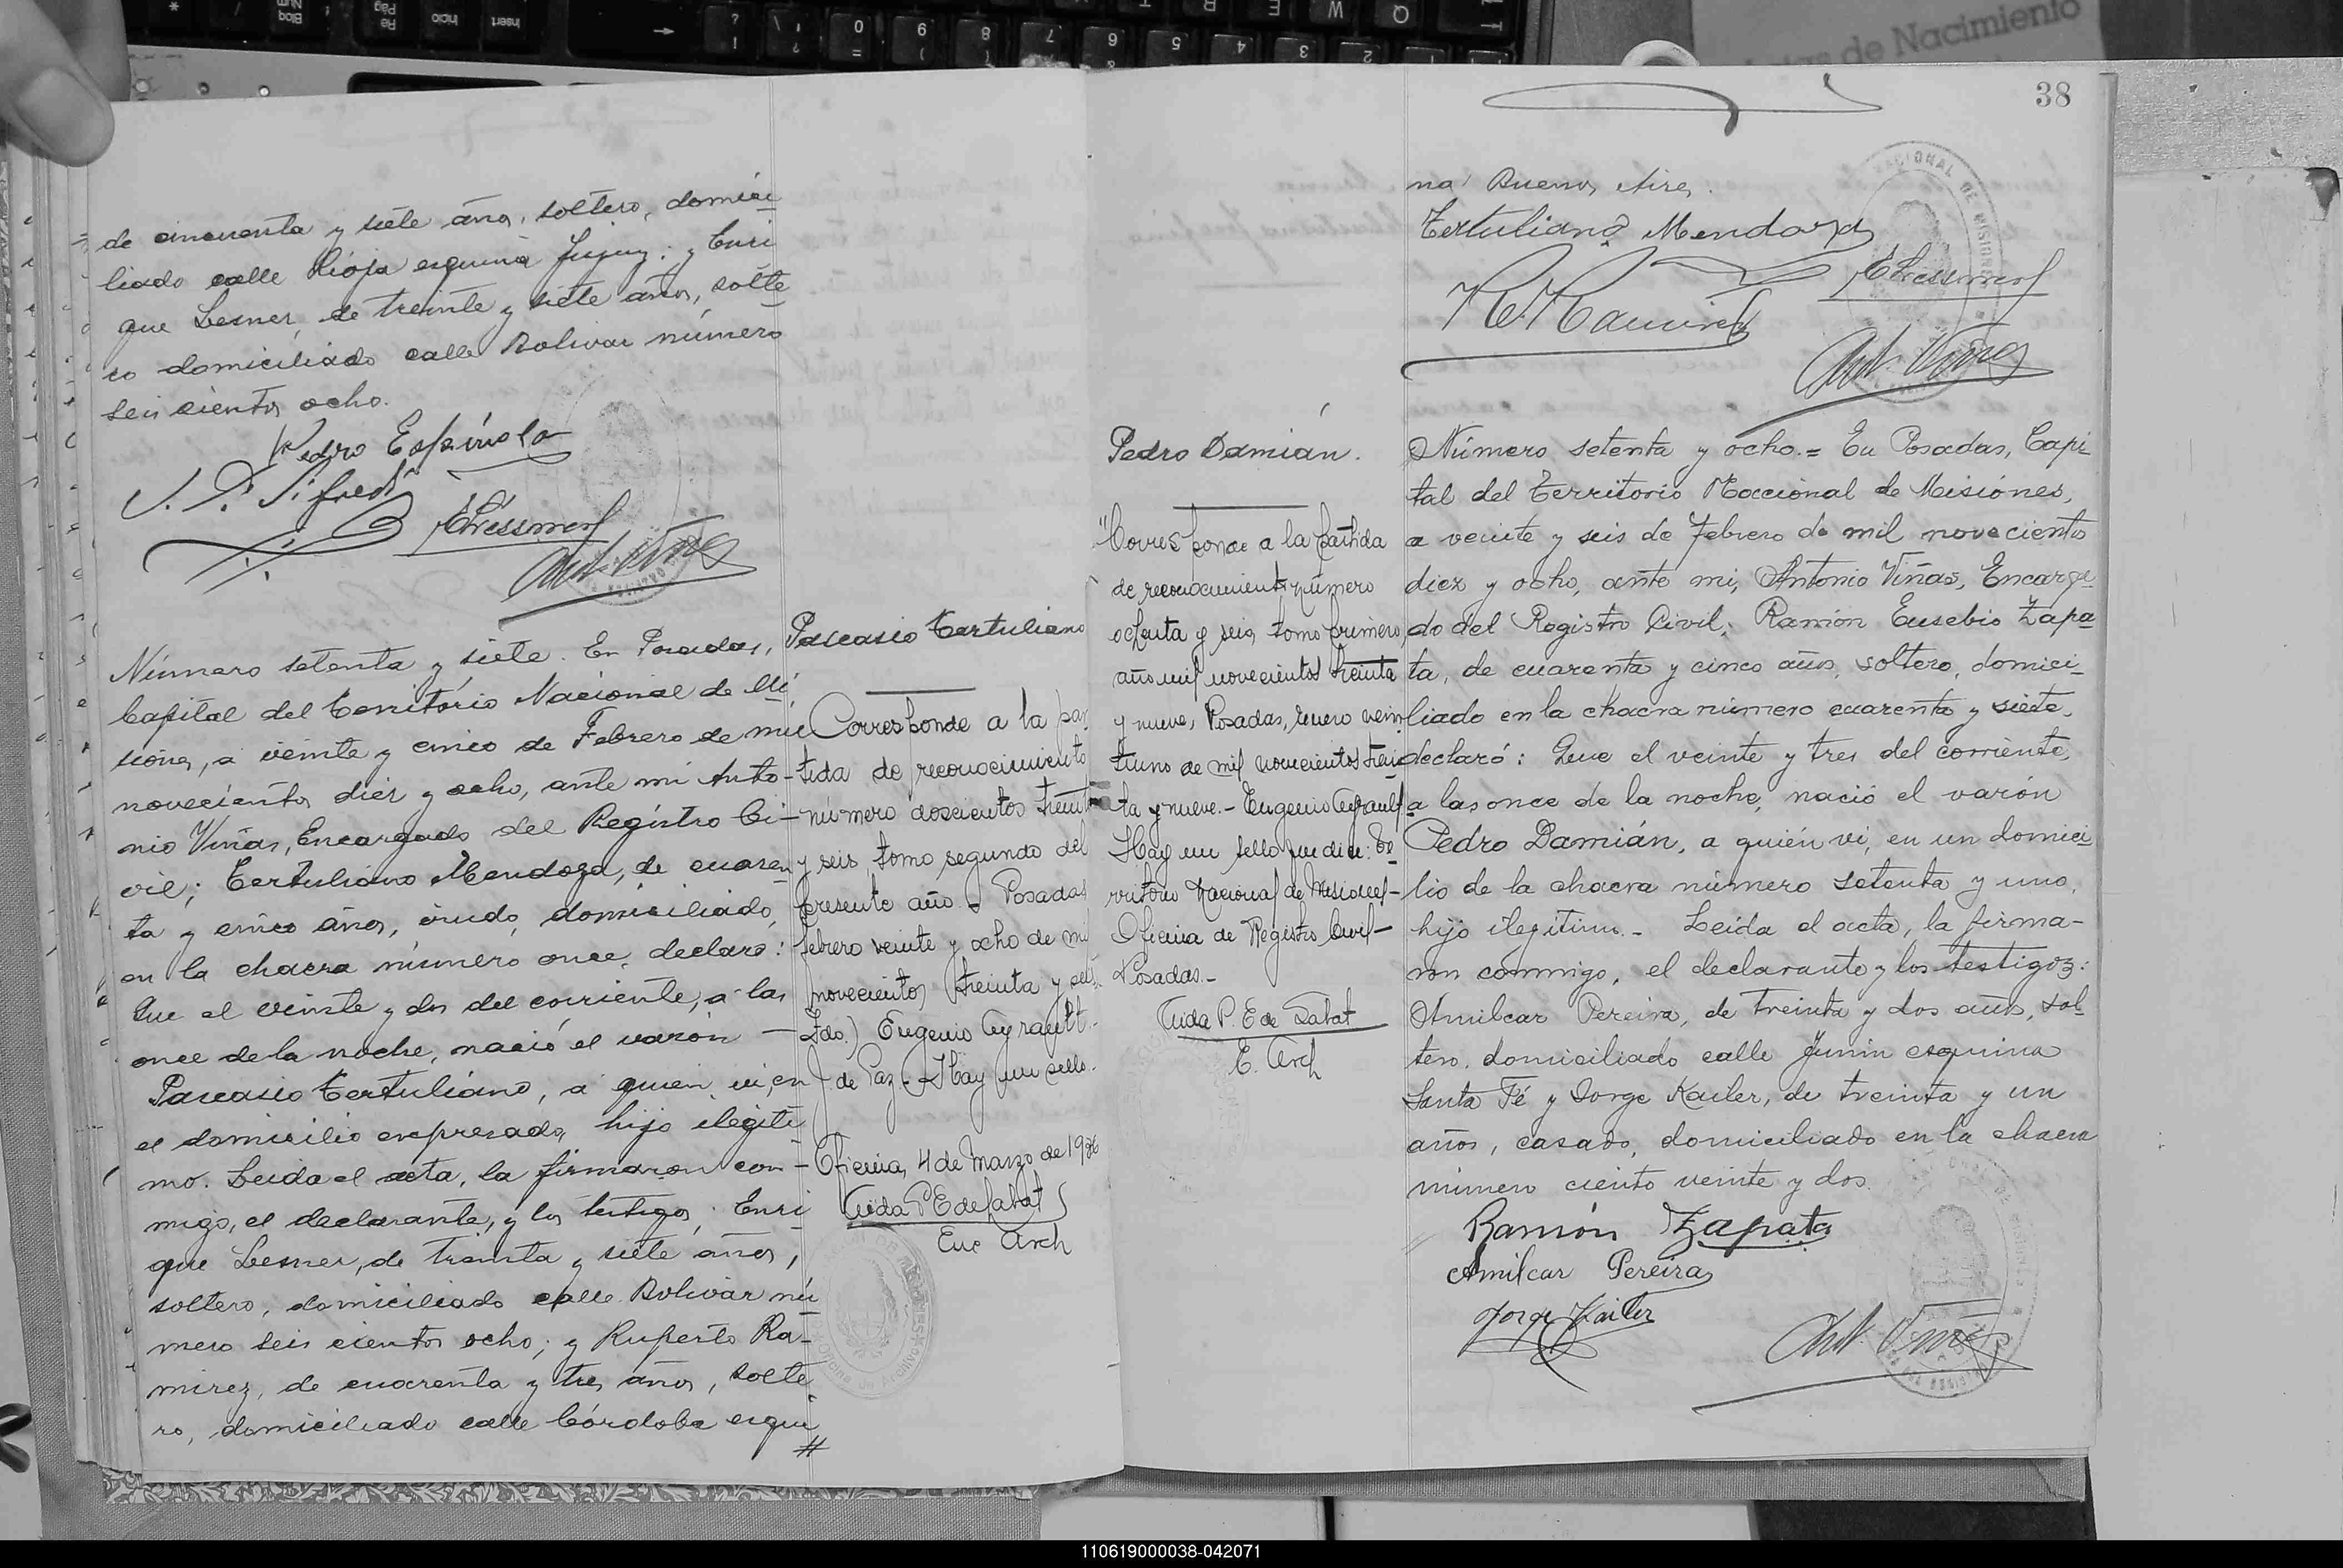 de cincuenta y siete años, soltero, domici
liado calle Rioja esquina Jujuy; y Enri
que Lesner, de treinta y siete años, solte
ro domiciliado calle Bolivar número
seis cientos ocho.
Pedro Espínola
Ant. Viñas
Número setenta y siete. En Posadas,
Capital del Territorio Nacional de Mi
siones, a veinte y cinco de Febrero de mil
novecientos diez y ocho, ante mi Anto-
nio Viñas, Encargado del Registro Ci-
vil; Tertuliano Mendoza, de cuaren
ta y cinco años, viudo, domiciliado,
en la chacra número once, declaro:
Que el veinte y dos del corriente, a las
once de la noche, nació el varón —
Pascasio Tertuliano, a quien vi, en
el domicilio expresado, hijo ilegiti
mo. Leida el acta, la firmaron con-
migo, el declarante, y los testigos; Enri
que Lesner, de treinta y siete años,
soltero, domiciliado calle Bolivar nú
mero seis cientos ocho; y Ruperto Ra-
mirez, de cuarenta y tres años, solte
ro, domiciliado calle Córdoba esqui
#
Pascasio Tertuliano
Corresponde a la par
tida de reconocimiento
número doscientos treint
y seis, tomo segundo del
presente año. - Posadas
febrero veinte y ocho de mil
novecientos treinta y seis.
Fdo.) Eugenio Ayrault.
J. de Paz. - Hay un sello.
Oficina, 4 de Marzo de 1936
Aida P. E de Sabat
Enc Arch
38
na Buenos Aires.
Tertuliano Mendoza
R. Ramirez
Ant. Viñas
Pedro Damián.
"Corresponde a la partida
de reconocimiento número
ochenta y seis, tomo primero,
año mil novecientos treinta
y nueve, Posadas, Enero vein
tiuno de mil novecientos trein
ta y nueve.- Eugenio Ayrault
Hay un sello que dice: Te
rritorio Nacional de Misiones-
Oficina de Registro Civil-
Posadas.-
Aida P. E de Sabat
E. Arch
Número setenta y ocho.= En Posadas, Capi
tal del Territorio Naccional de Misiones,
a veinte y seis de Febrero de mil novecientos
diez y ocho, ante mi, Antonio Viñas, Encarga
do del Registro Civil; Ramón Eusebio Zapa
ta, de cuarenta y cinco años, soltero, domici-
liado en la chacra número cuarenta y siete,
declaró: Que el veinte y tres del corriente,
a las once de la noche, nació el varón
Pedro Damián, a quién vi, en un domici
lio de la chacra número setenta y uno,
hijo ilegitimo.- Leida el acta, la firma-
ron conmigo, el declarante y los testigos:
Amilcar Pereira, de treinta y dos años, sol
tero, domiciliado calle Junin esquina
Santa Fé y Jorge Kailer, de treinta y un
años, casado, domiciliado en la chacra
número ciento veinte y dos.
Ramón Zapata
Amilcar Pereira
Jorge Kailer
Ant. Viñas
110619000038-042071